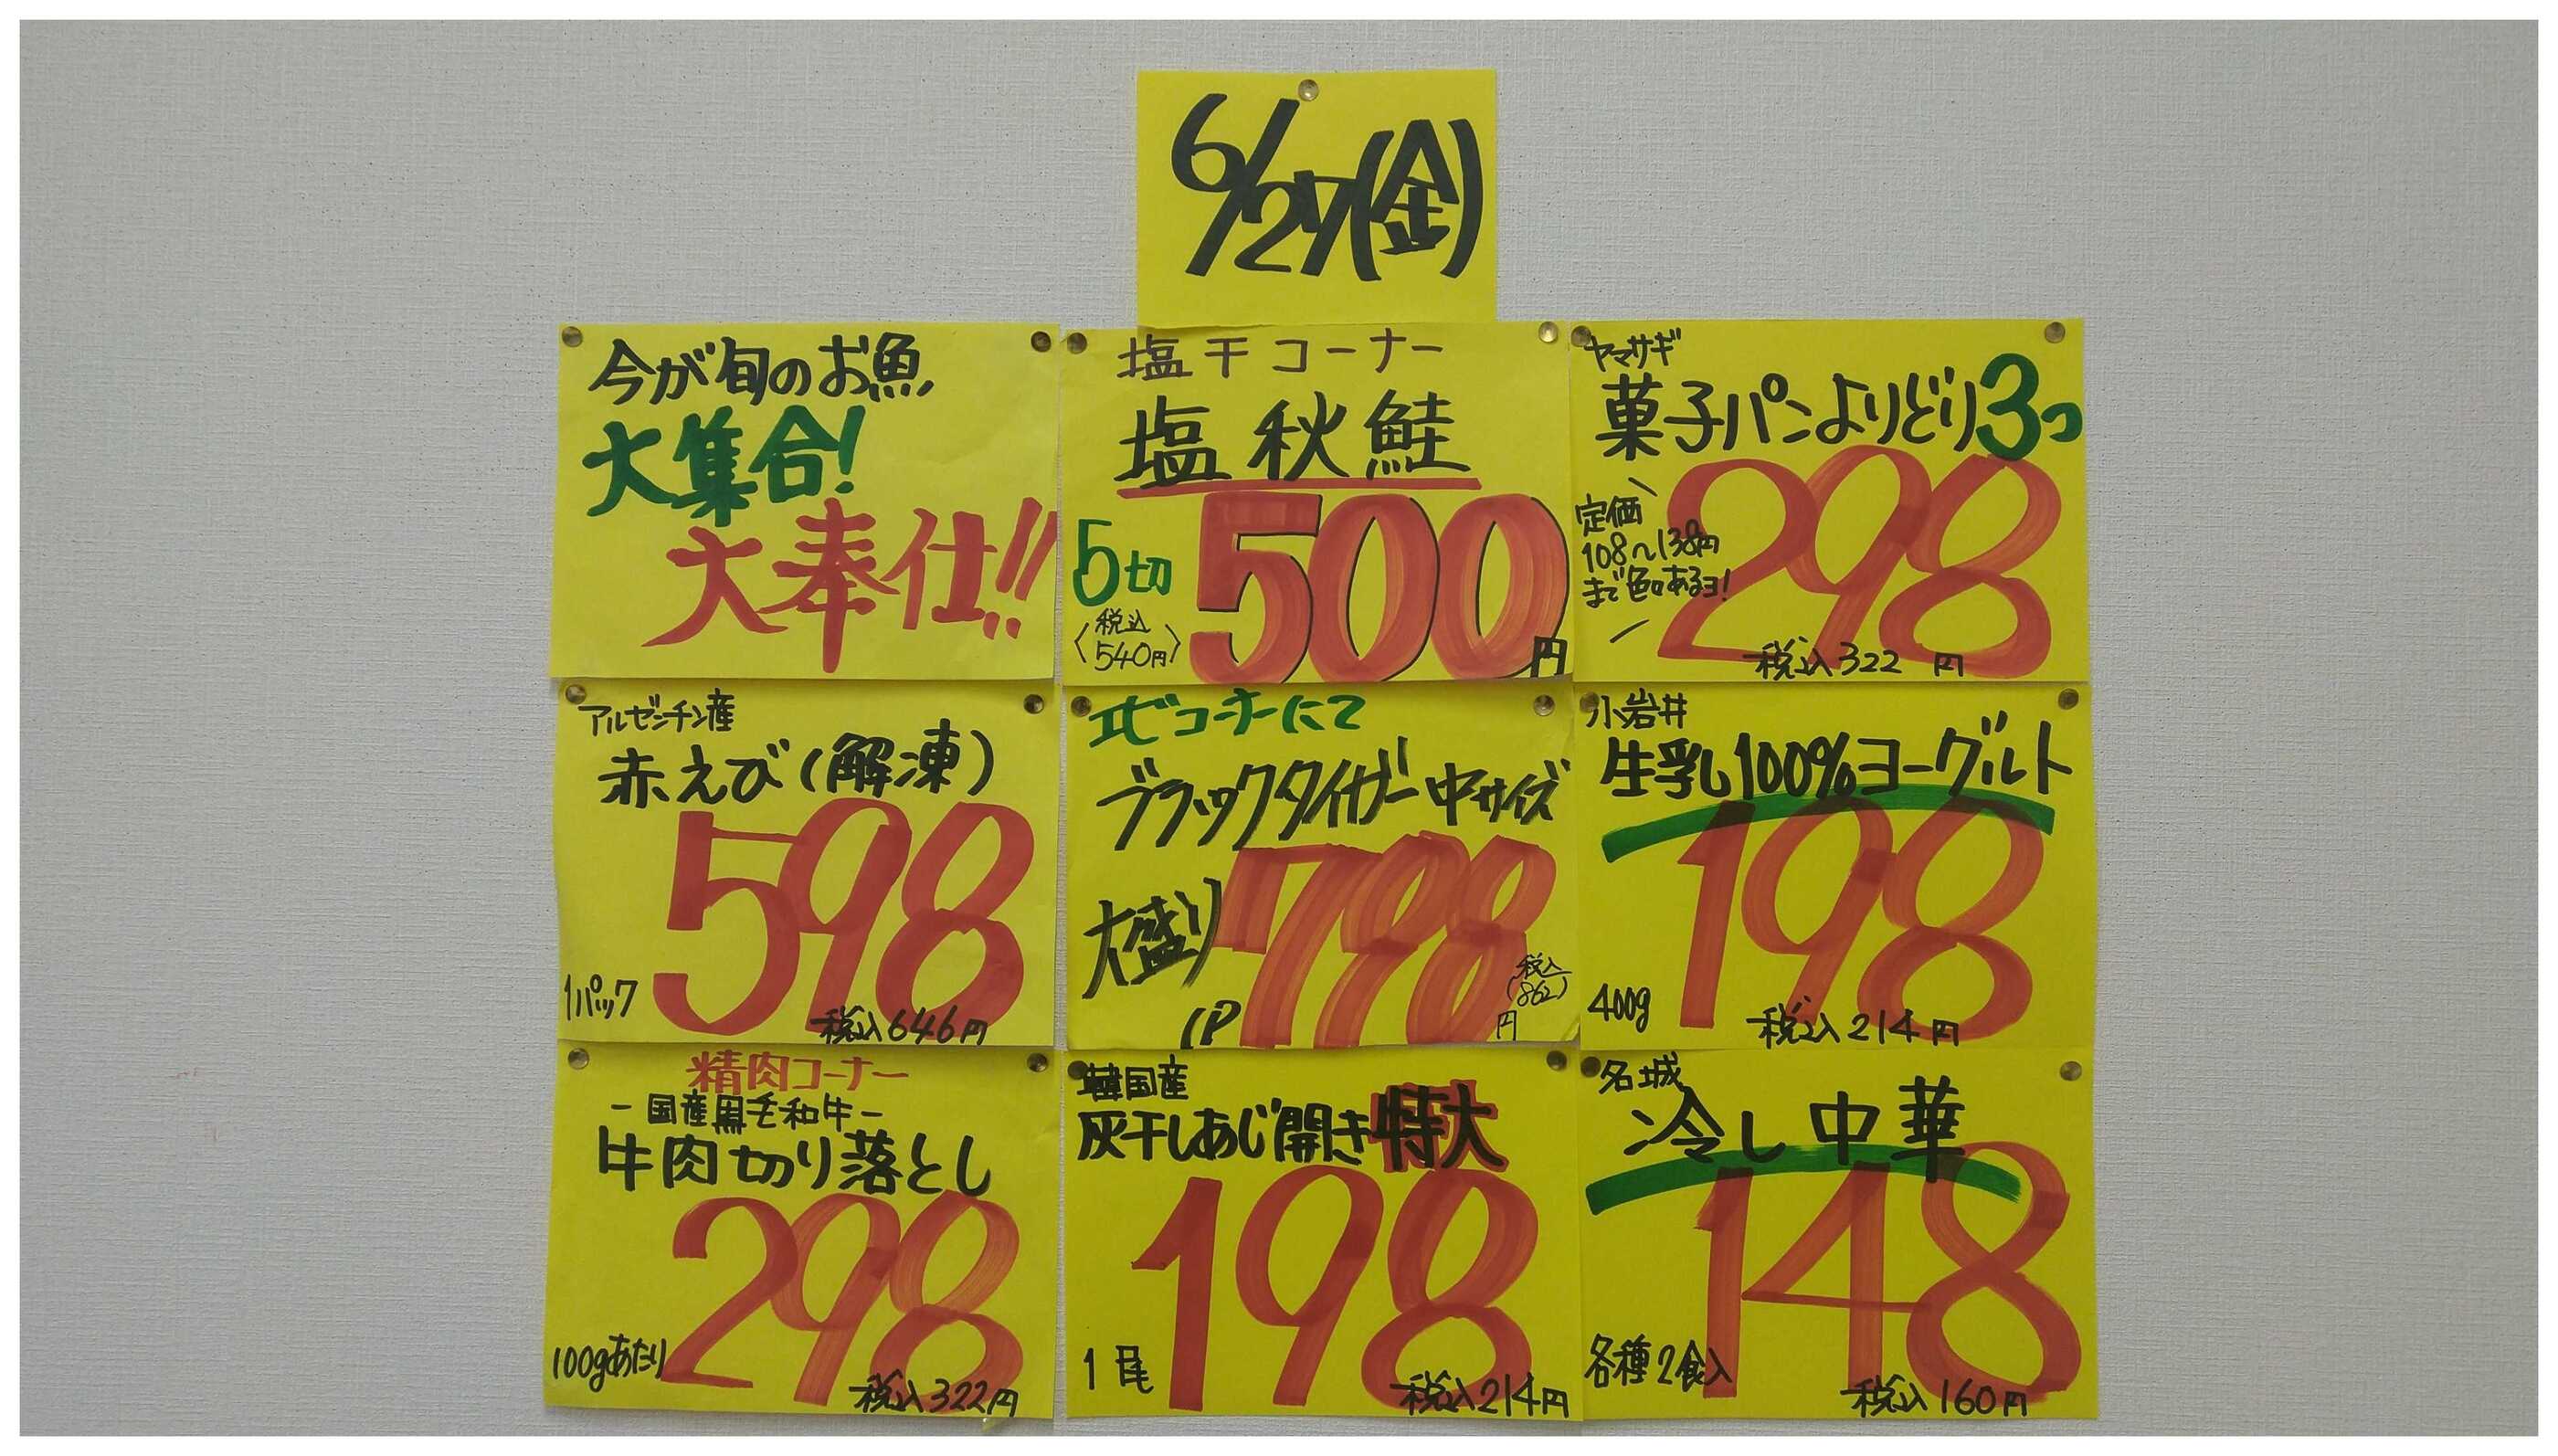 6/27(金)
今が旬のお魚
大集合!
大奉仕!!
塩干コーナー
塩秋鮭
5切
500円
〈税込
540円〉
ヤマザキ
菓子パンよりどり3つ
定価
108〜138円
まで色々あるヨ!
298
税込322円
アルゼンチン産
赤えび(解凍)
598
1パック
税込646円
エビコーナーにて
ブラックタイガー中サイズ
大盛り
798
1P
税込
(862)
円
小岩井
生乳100%ヨーグルト
198
400g
税込214円
精肉コーナー
-国産黒毛和牛-
牛肉切り落とし
298
100gあたり
税込322円
韓国産
灰干しあじ開き特大
198
1尾
税込214円
名城
冷し中華
148
各種2食入
税込160円